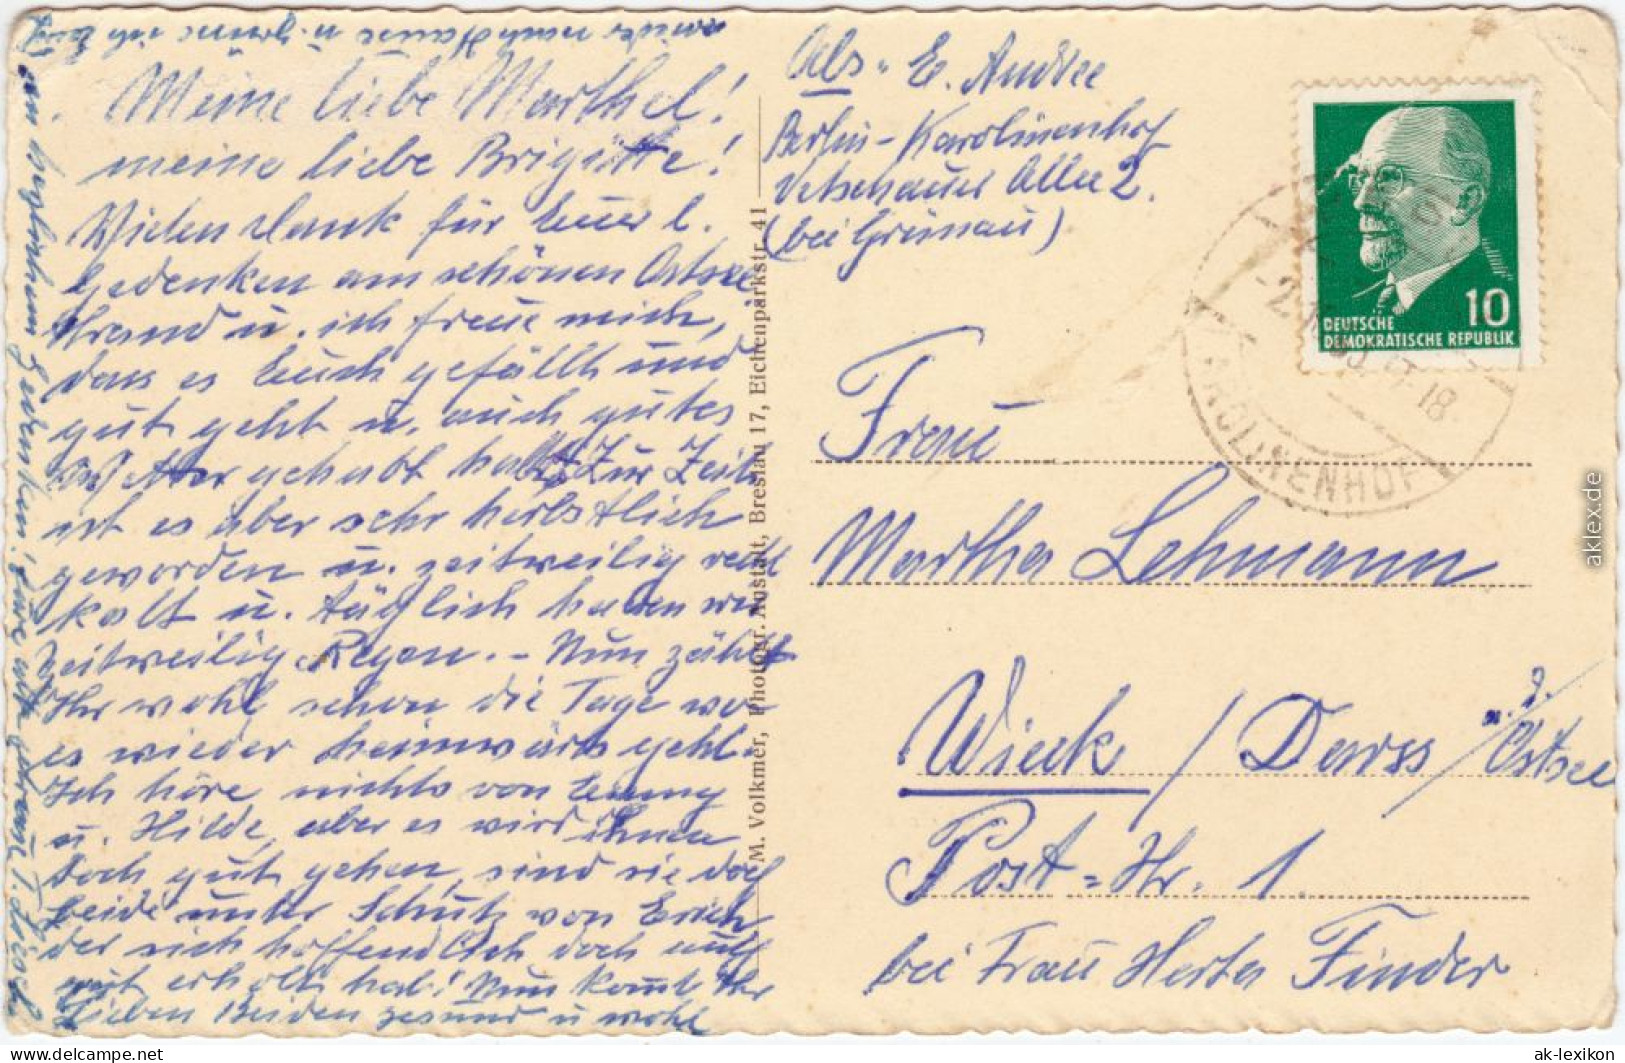 Meine liebe Marthel!
meine liebe Brigitte!
Vielen Dank für Euer l.
Gedenken am schönen Ostsee
Strand u. ich freue mich,
dass es Euch gefällt und
gut geht u. auch gutes
Wetter gehabt habt. Zur Zeit
ist es aber sehr herbstlich
geworden u. zeitweilig recht
kalt u. täglich haben wir
zeitweilig Regen. - Nun zählt
Ihr wohl schon die Tage wo
es wieder heimwärts geht.
Ich höre nichts von
u. Hilde, aber es wird ihnen
doch gut gehen, sind sie doch
beide unter Schutz von Erich
der sich hoffendlich doch auch
gut erholt hat! Nun kommt Ihr
Lieben Beiden gesund u wohl
wieder nach Hause u. grüsse ich Euch
in herzlichem Gedenken! Eure alte getreue T. Liesel
M. Volkmer, Photogr. Anstalt, Breslau 17, Eichenparkstr. 41
Abs. E. Andree
Berlin-Karolinenhof
Vetschauer Allee 2.
(bei Grünau)
10
DEUTSCHE
DEMOKRATISCHE REPUBLIK
-2.
-18
KAROLINENHOF
Frau
Martha Lehmann
Wieck / Darss / Ostsee
Post-Str. 1.
bei Frau Herta Finder
aklex.de
DELCAMPE.NET
ak-lexikon